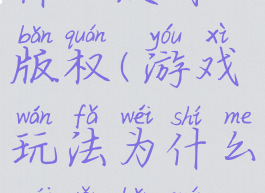 bǎn quán yóu xì
版权(游戏
wán fǎ wéi shí me
玩法为什么